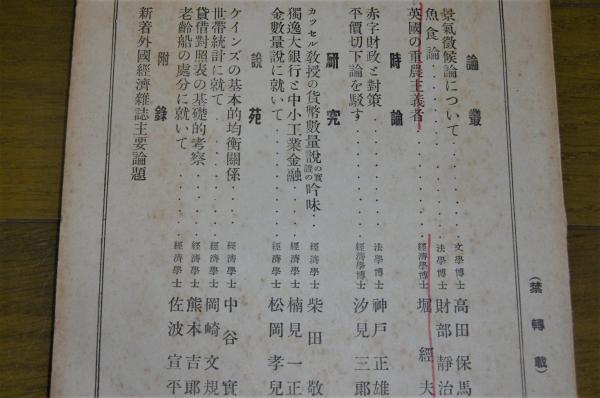 (禁轉載)
論叢
景氣徴候論について . . . . 文學博士 高田保馬
魚食論 . . . . 法學博士 財部靜治
英國の重農主義者 . . . . 經濟學博士 堀經夫
時論
赤字財政と對策 . . . . 法學博士 神戸正雄
平價切下論を駁す . . . . 經濟學博士 汐見三郎
研究
カッセル教授の貨幣數量說の實證的吟味 . . 經濟學士 柴田敬
獨逸大銀行と中小工業金融 . . . 經濟學士 楠見一正
金數量說に就いて . . . . 經濟學士 松岡孝兒
說苑
ケインズの基本的均衡關係 . . . 經濟學士 中谷實
世帶統計に就て . . . . 經濟學士 岡崎文規
貸借對照表の基礎的考察 . . . . 經濟學士 熊本吉郎
老齡船の處分に就いて . . . . 經濟學士 佐波宣平
附錄
新着外國經濟雜誌主要論題